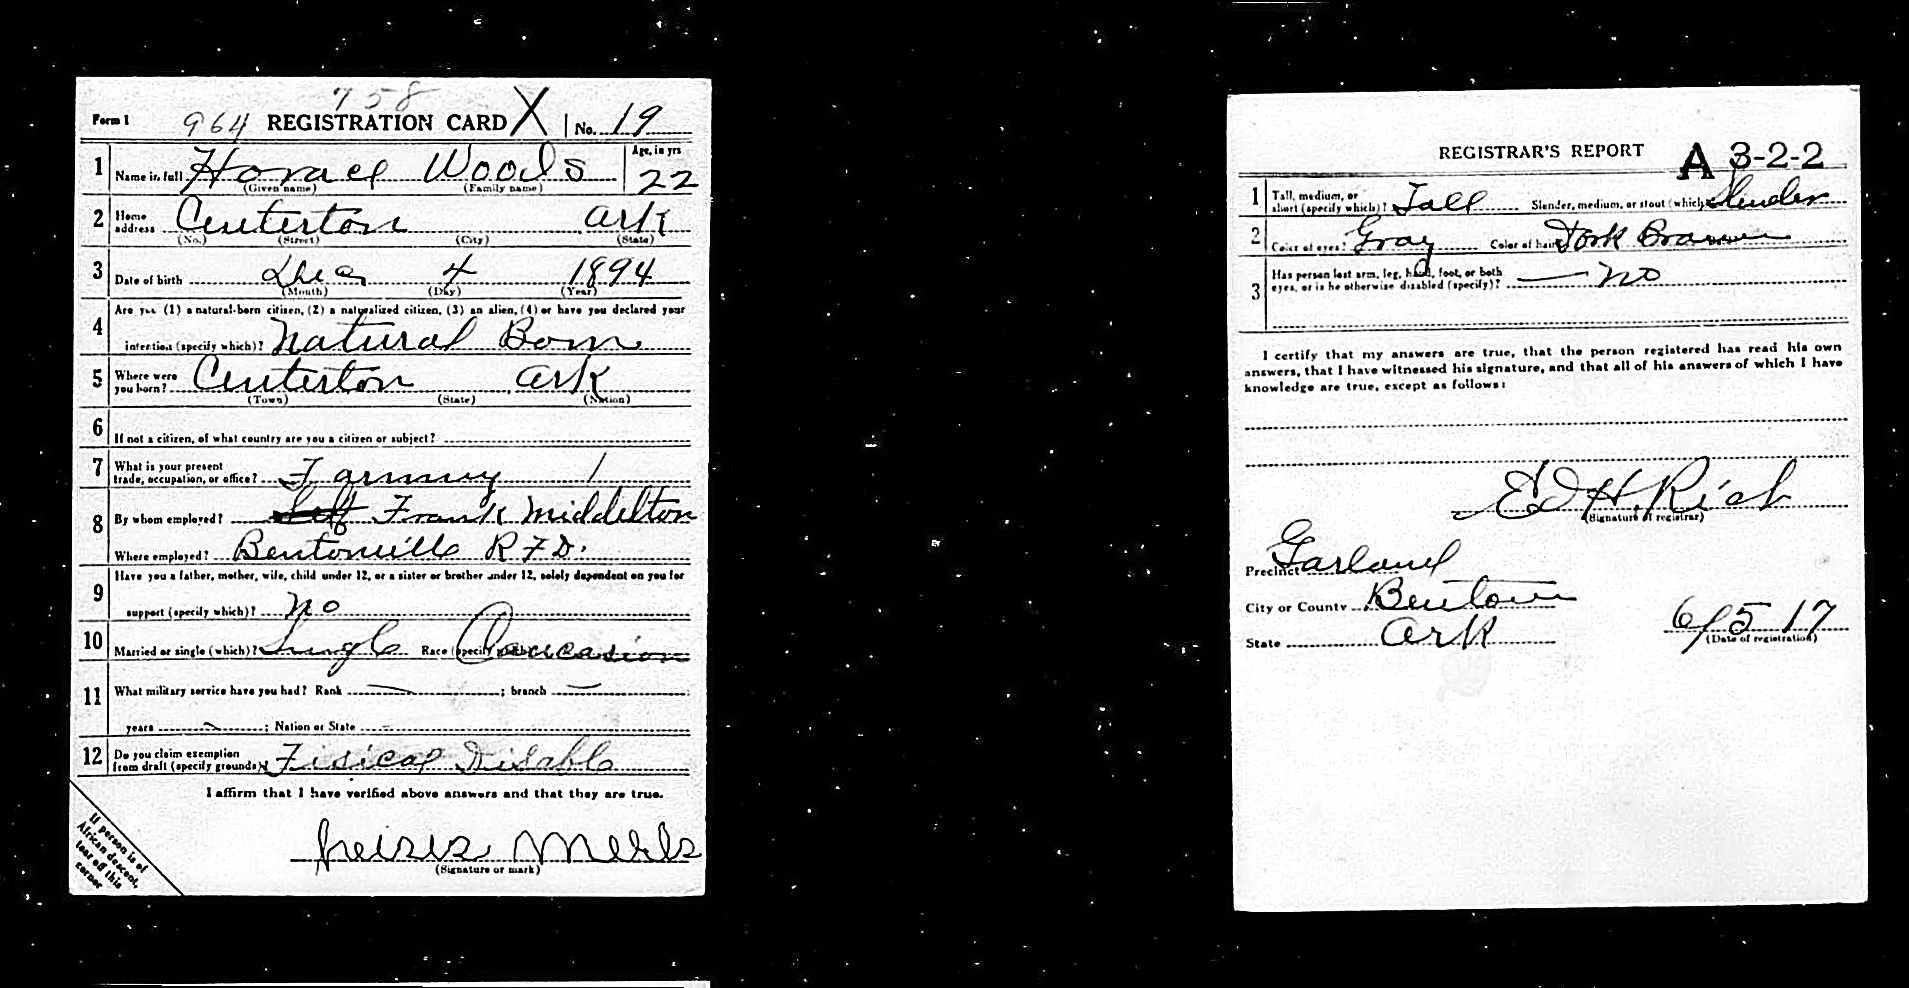 758
Form 1 964 REGISTRATION CARD X No. 19
1 Name in full Horace Woods Age, in yrs 22
(Given name) (Family name)
2 Home address Centerton Ark
(No.) (Street) (City) (State)
3 Date of birth 4 1894
(Month) (Day) (Year)
4 Are you (1) a natural-born citizen, (2) a naturalized citizen, (3) an alien, (4) or have you declared your
intention (specify which)? Natural Born
5 Where were you born? Centerton Ark
(Town) (State) (Nation)
6 If not a citizen, of what country are you a citizen or subject?
7 What is your present trade, occupation, or office? Farming 1
8 By whom employed? Self Frank Middelton
Where employed? Bentonville R F D.
9 Have you a father, mother, wife, child under 12, or a sister or brother under 12, solely dependent on you for
support (specify which)? No
10 Married or single (which)? Single Race (specify which)? Caucasion
11 What military service have you had? Rank — ; branch —
years — ; Nation or State —
12 Do you claim exemption from draft (specify grounds)? Fisical Disable
I affirm that I have verified above answers and that they are true.
(Signature or mark)
If person is of African descent, tear off this corner
REGISTRAR'S REPORT A 3-2-2
1 Tall, medium, or short (specify which)? Tall Slender, medium, or stout (which)? Slender
2 Color of eyes? Gray Color of hair? Dark Brown
3 Has person lost arm, leg, hand, foot, or both eyes, or is he otherwise disabled (specify)? — No
I certify that my answers are true, that the person registered has read his own
answers, that I have witnessed his signature, and that all of his answers of which I have
knowledge are true, except as follows:
Ed H. Rich
(Signature of registrar)
Precinct Garland
City or County Benton
State Ark
6/5 17
(Date of registration)